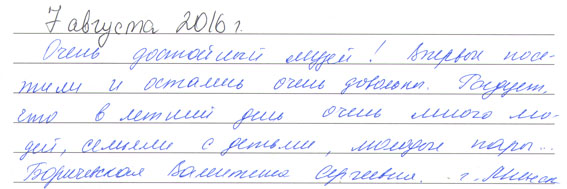 7 августа 2016 г.
Очень достойный музей! Впервые посе-
тили и остались очень довольны. Радует,
что в летний день очень много лю-
дей, семьями с детьми, молодые пары...
Валентина Сергеевна. г. Минск